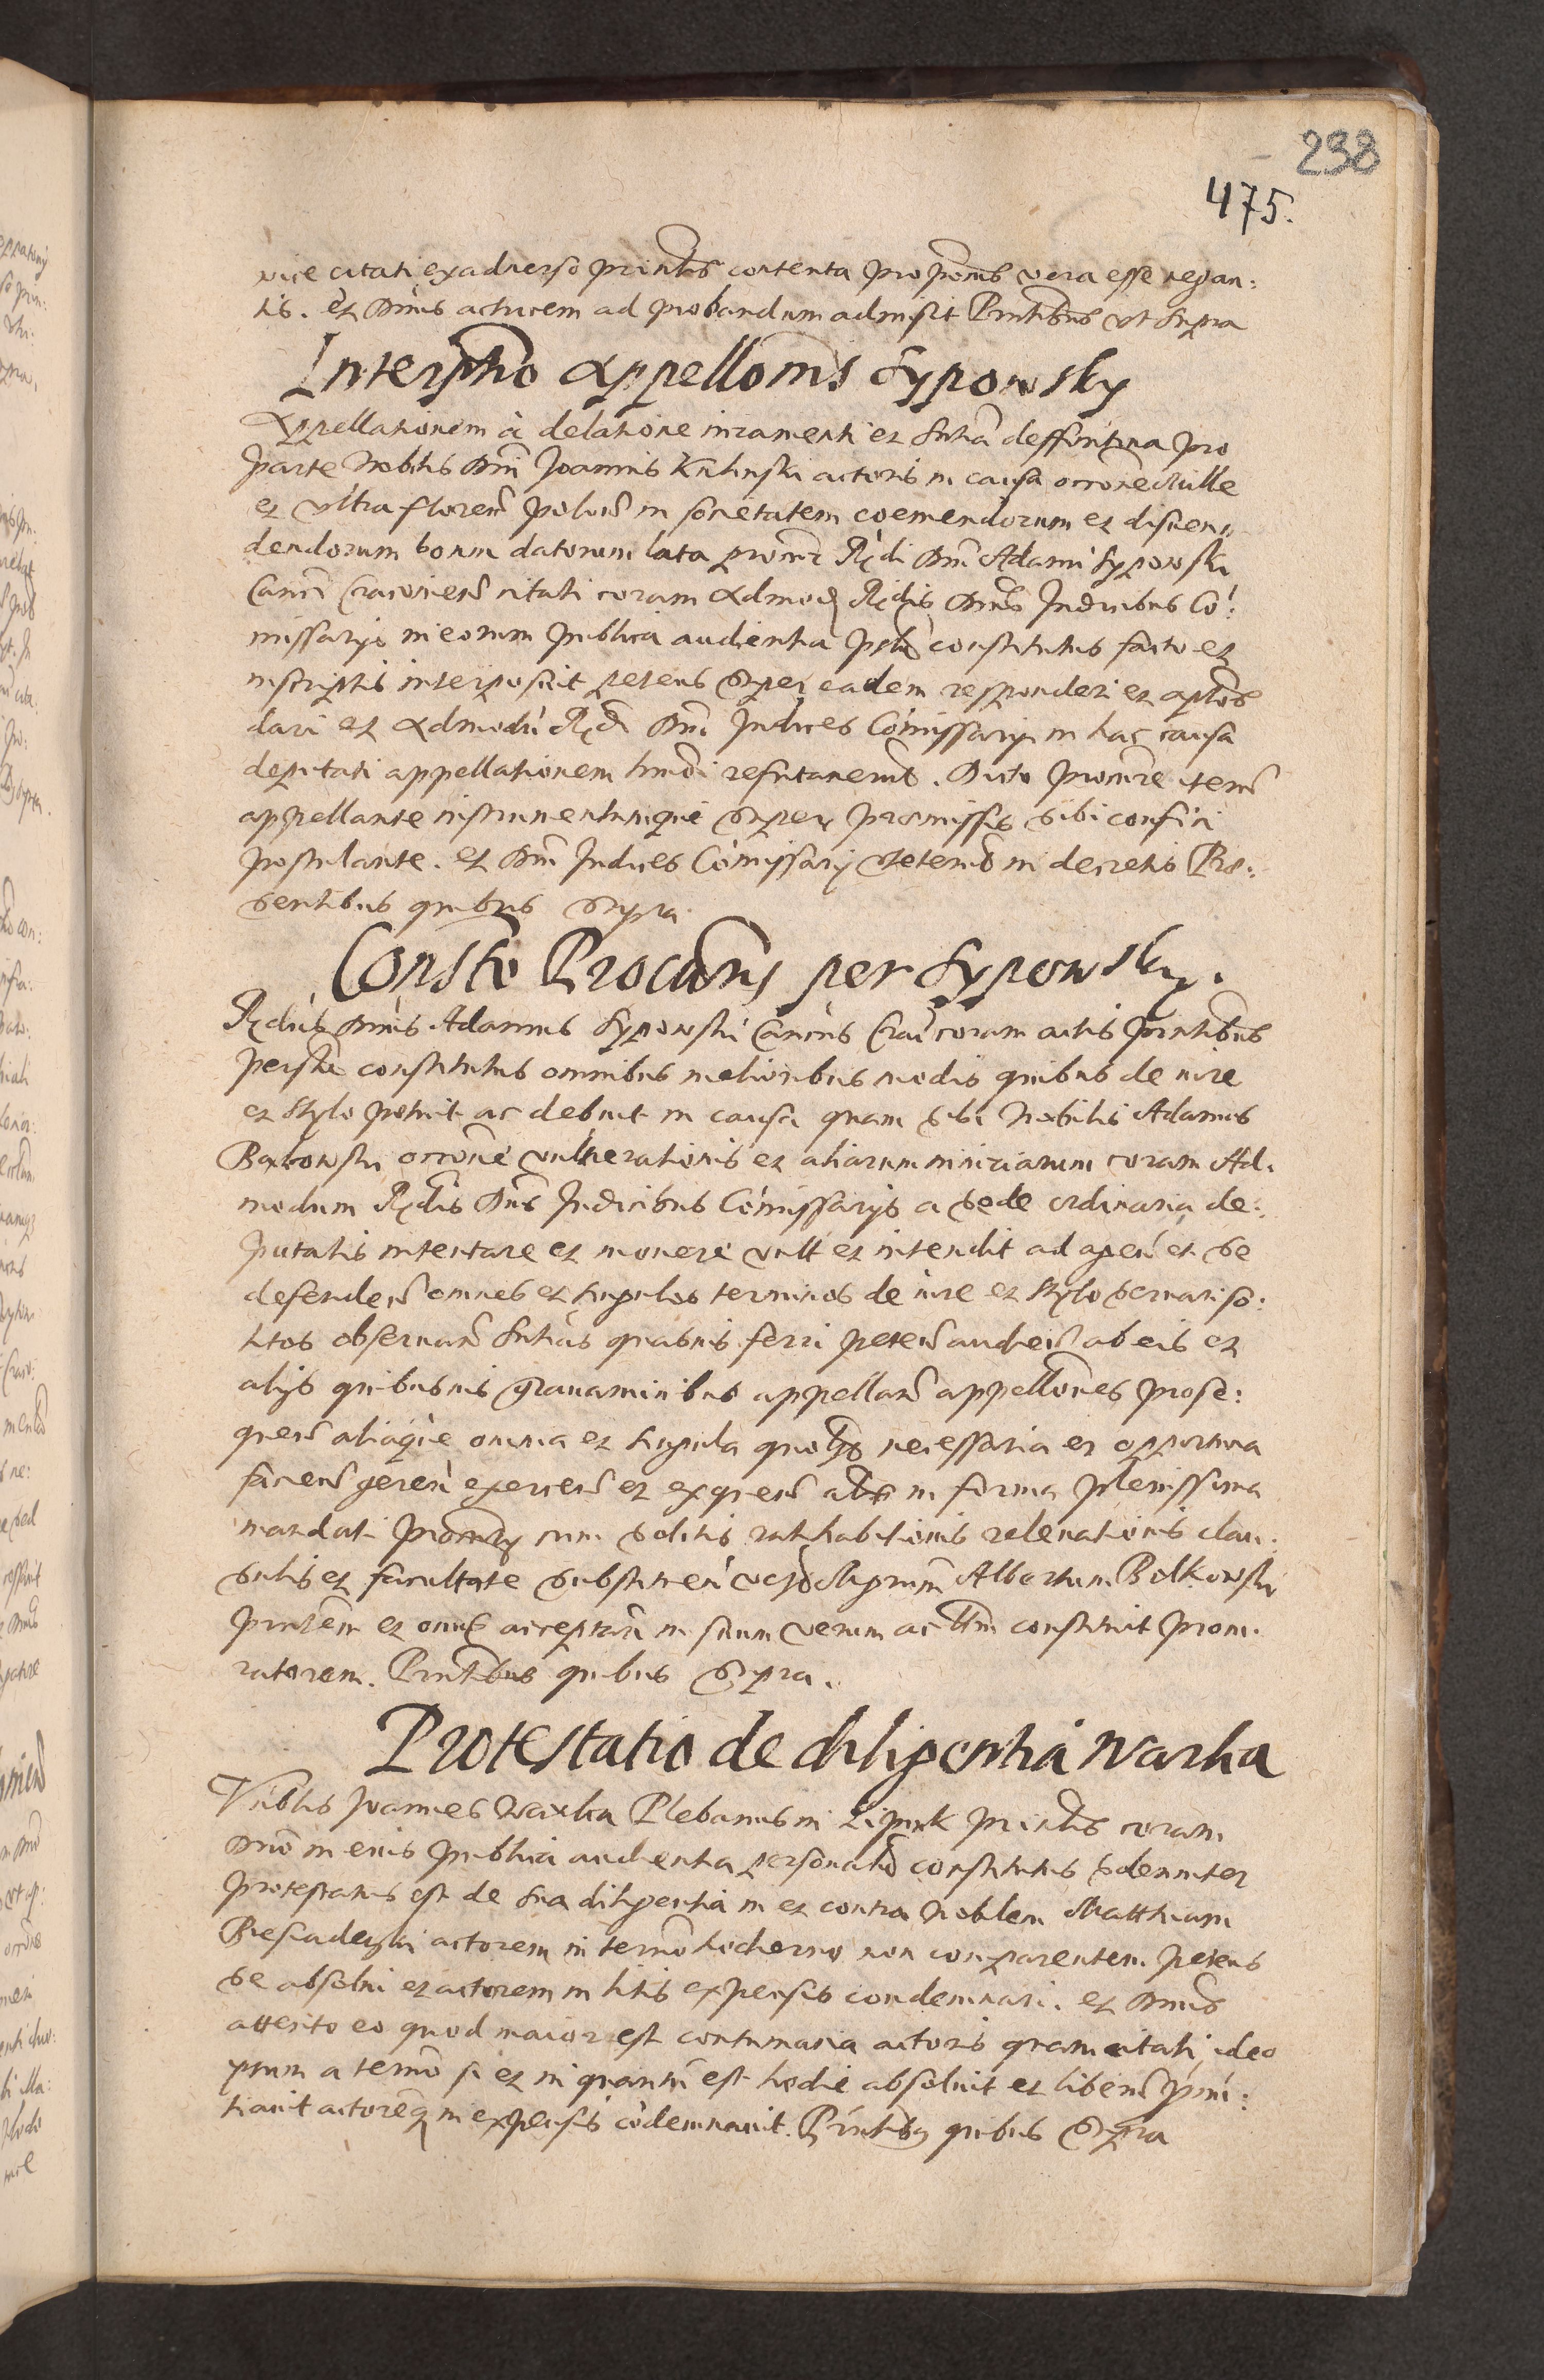 238
475.
vice citati ex aduerso prîntis contenta propônis vera esse negan:
tis. et Dnus actorem ad probandum admisit Prntibus vt supra
Interptio Appellonis Sypowsky
Appellationem à delatione iuramenti et sntia deffinitiua pro
parte Nobilis Dni Joannis Kulinski actoris in causa occone Mille
et vltra floren polon in societatem coemendorum et distien„
dendorum boum datorum lata procur Rdi Dni Adami Sypowski
Canci Cracoviens citati coram Admod Rdis Dnis Judicibus Co:
missarijs in eorum publica audientia psnlr constitutus facto et
inscriptis interposuit petens super eadem responderi et aplos
dari et Admodu Rdi Dni Judices Comissarij in hac causa
deputati appellationem hmoi refutauerunt. Dicto procure iterum
appellante instrumentumque super praemissis sibi confici
postulante. et Dni Judices Comissarij steterunt in decretis Prae:
sentibus quibus supra.
Constio Procuris per Sypowsky.
Rdus Dnus Adamus Sypowski Cancus Crac coram actis prntibus
persnlr constitutus omnibus melioribus modis quibus de iure
et stylo potuit ac debuit in causa quam sibi Nobilis Adamus
occone vulnerationis et aliarum iniuriarum coram Ad.
modum Rdis Dnis Judicibus Comissarijs a sede ordinaria de:
putatis intentare et mouere vult et intendit ad agen et se
defenden omnes et singulos terminos de iure et stylo seruari so:
litos obseruan sntias quasuis ferri peten audien ab eis et
alijs quibusuis grauaminibus appellan appellones prose:
quen aliaque omnia et singula necessaria et opportuna
facien geren exercen et exequen in forma plenissima
mandati procury cum solitis ratihabitionis releuationis clau:
sulis et facultate substituen Mgrum Albertum Bolkowski
prntem et onus acceptan in suum verum ac lttm constituit procu.
ratorem. Prntibus quibus supra.
Protestatio de diligentia Warka
Vnblis Joannes Warka Plebanus in Lipnik prntis coram
Dno in eius publica audientia personalr constitutus solenniter
protestatus est de sua diligentia in et contra Noblem Matthiam
actorem in termo hodierno non comparentem. petens
se absolui et actorem in litis expensis condemnari. et Dnus
attento eo quod maior est contumacia actoris quam citati, ideo
ptum a termo si et in quantu est hodie absoluit et liberu pnu:
tiauit actoreq in expensis codemnauit. Prntibq quibus supra